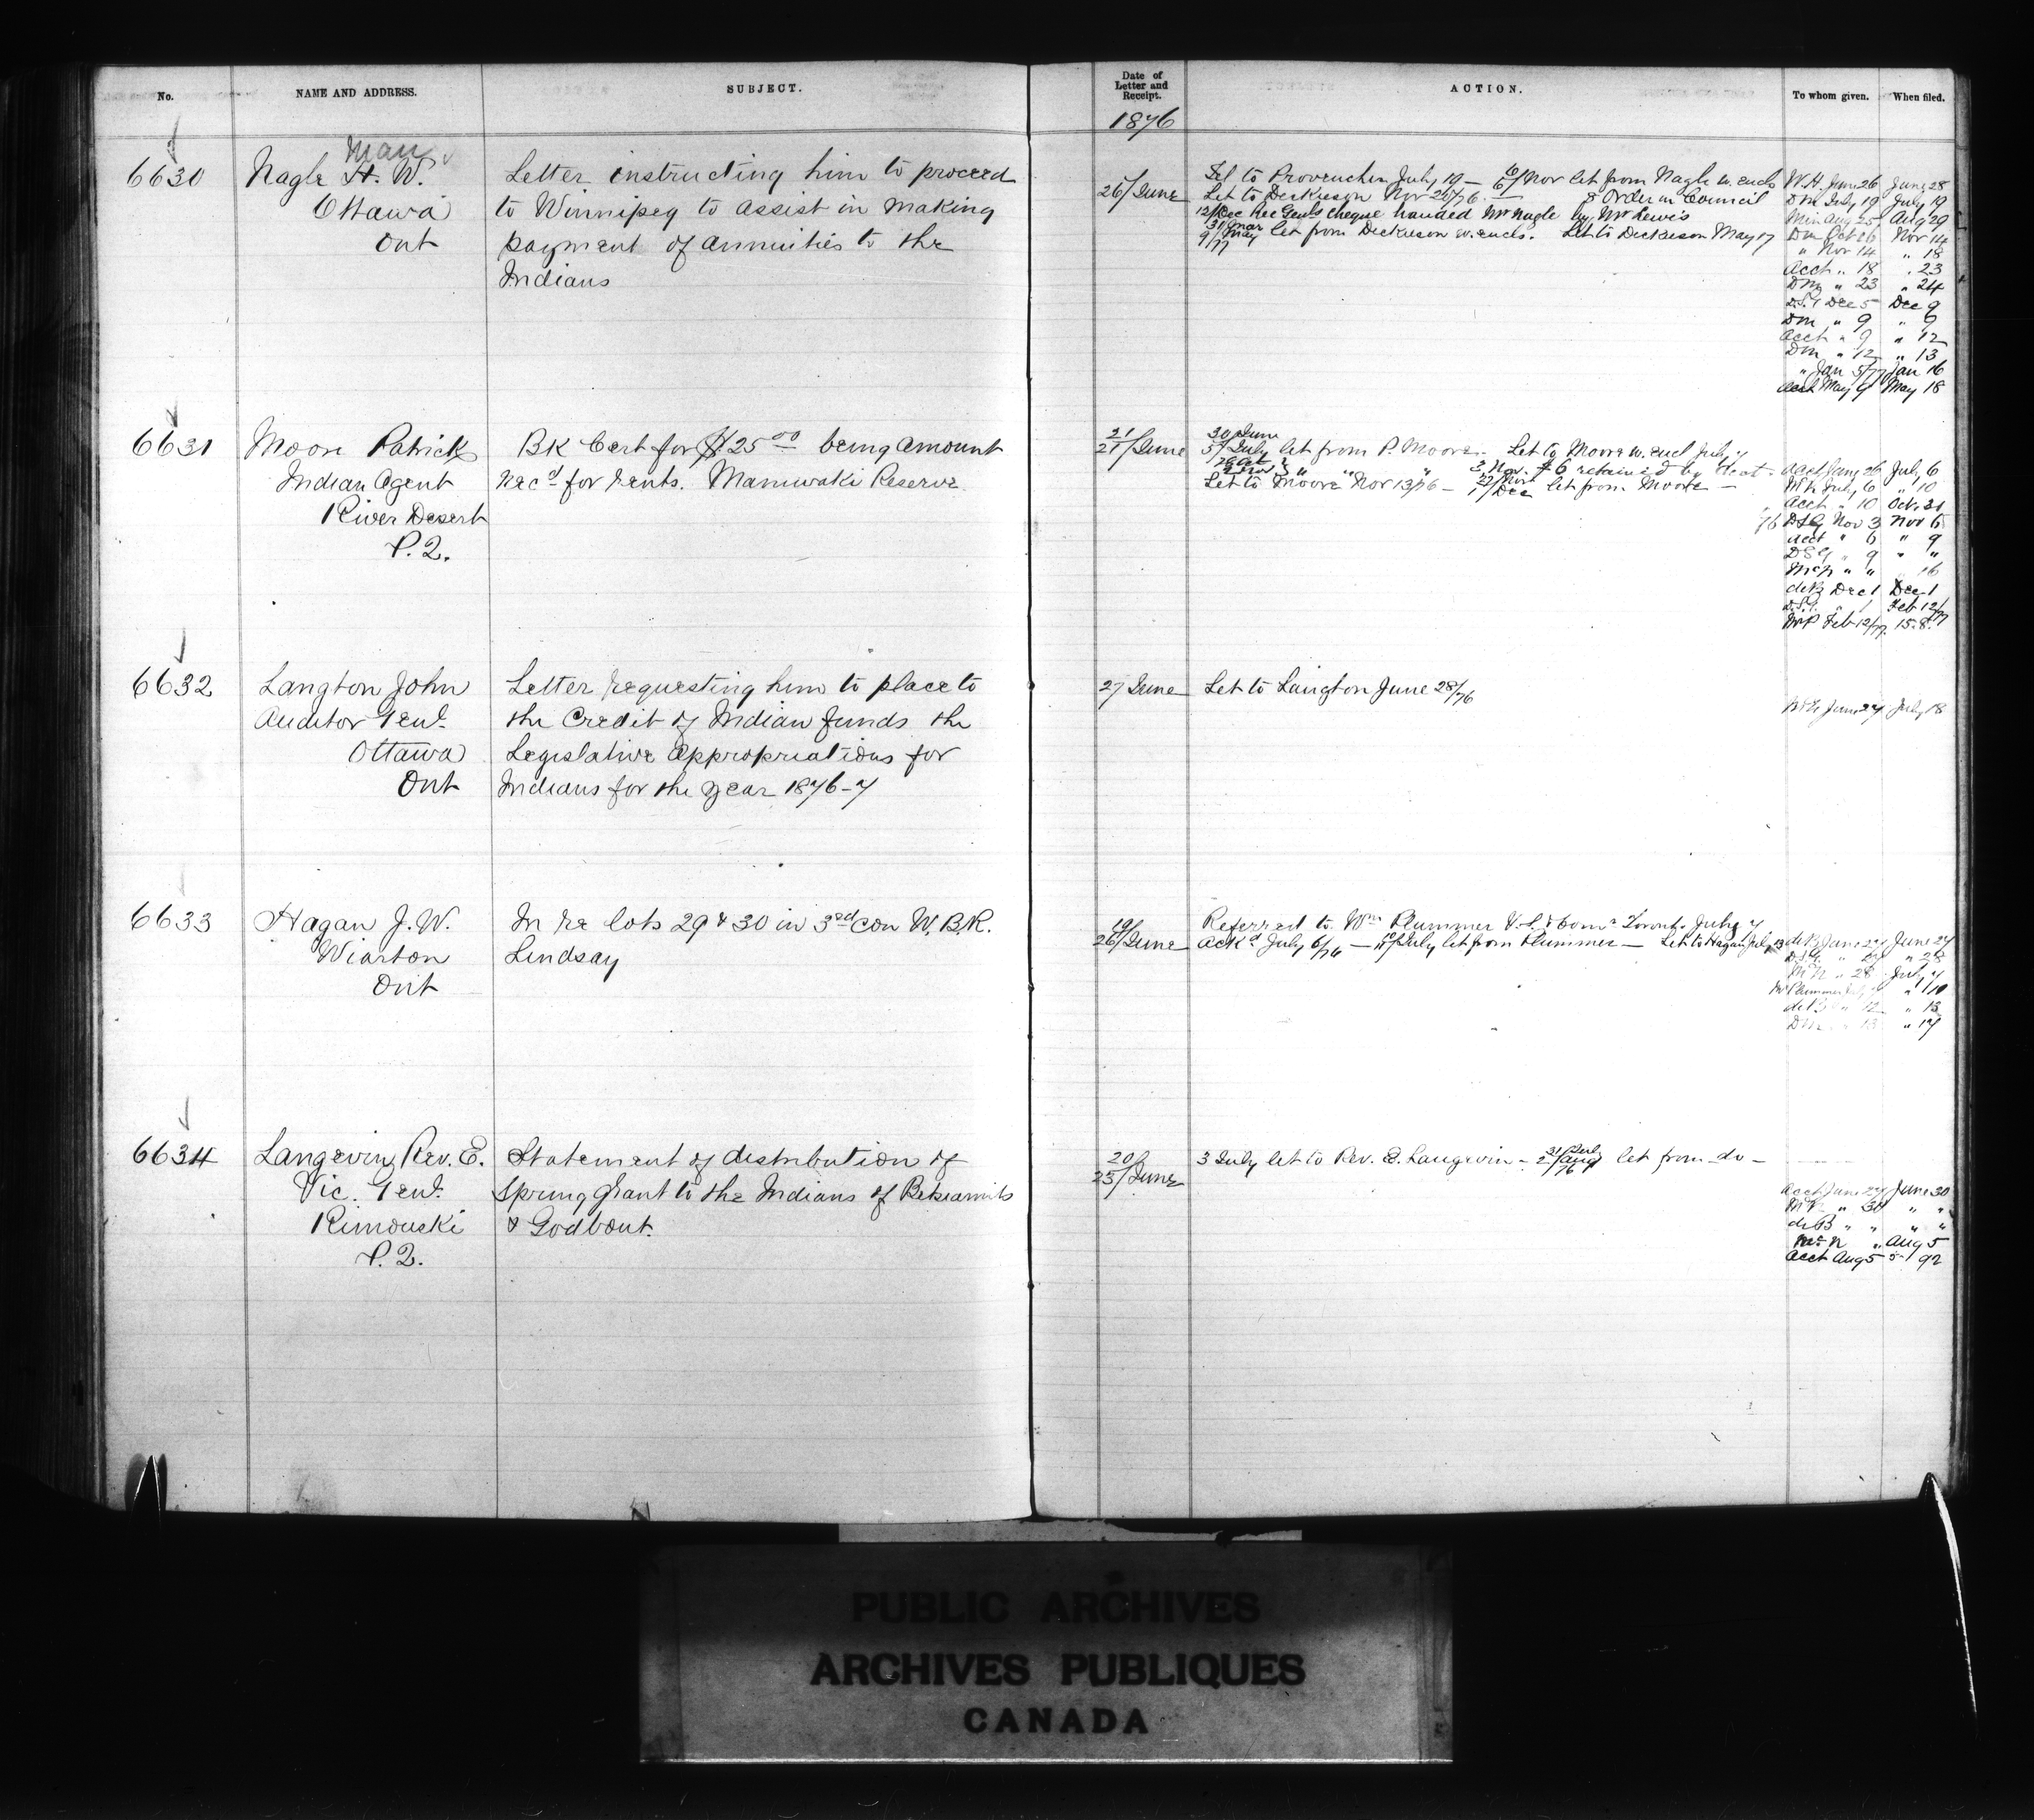 No.
NAME AND ADDRESS.
SUBJECT.
Date of
Letter and
Receipt.
ACTION.
To whom given.
When filed.
1876
6630
Man
Nagle H. W.
Ottawa
Ont
Letter instructing him to proceed
to Winnipeg to assist in making
payment of annuities to the
Indians
26/June
Tel to Provencher July 19 — 6/Nov let from Nagle w. encls
Let to Dickieson Nov 20/76 — & Order in Council
12/Dec Rec Genls cheque handed Mr Nagle by Mr Lewis
31/Mar
9/May
/77
let from Dickieson w. encls. Let to Dickieson May 17
W.H. June 26 June 28
Dm July 19 July 19
Min Aug 25 Aug 29
Dm Oct 26 Nov 14
" Nov 14 " 18
Acct " 18 " 23
Dm " 23 " 24
D.S.G Dec 5 Dec 9
Dm " 9 " 9
Acct " 9 " 12
Dm " 12 " 13
" Jan 5/77 Jan 16
Acct May 9 May 18
6631
Moore Patrick
Indian Agent
River Desert
P. Q.
BK Cert for $25 00 being amount
rec'd for rents. Maniwaki Reserve
21
27/June
30 June
5/July let from P. Moore. Let to Moore w. encl July 7
3 Nov. $6 retained by Acct.
Let to Moore Nov 13/76 — 1/Dec let from Moore —
Acct June 26 July 6
July 6 " 10
Acct " 10 Oct. 21
76 DSG Nov 3 Nov 6
Acct " 6 " 9
DSG " 9 " "
McN " " 16
deB Dec 1 Dec 1
D.S.G. " 1 Feb 12/77
Feb 12/77 15.8.
6632
Langton John
Auditor Genl.
Ottawa
Ont
Letter requesting him to place to
the Credit of Indian funds the
Legislative Appropriations for
Indians for the year 1876-7
27 June
Let to Langton June 28/76
June 27 July 18
6633
Hagan J. W.
Wiarton
Ont
In re lots 29 & 30 in 3rd con W.B.R.
Lindsay
19
26/June
Referred to Wm Plummer V.S. & Comr Toronto July 7
Ackd July 6/76 — 10/11/July let from Plummer — Let to Hagan July 13
deB June 27 June 27
D.S.G. " 27 " 28
McN " 28 July 7
Mr Plummer July 7 " 10
deB " 12 " 13
Dm " 13 " 17
6634
Langevin Rev. E.
Vic. Genl.
Rimouski
P. Q.
Statement of distribution of
Spring Grant to the Indians of Betsiamits
& Godbout.
20
23/June
3 July let to Rev. E. Langevin — 31/July 2/Aug /76 let from do —
Acct June 27 June 30
" 30 " "
deB " " " "
McN " Aug 5
Acct Aug 5
PUBLIC ARCHIVES
ARCHIVES PUBLIQUES
CANADA